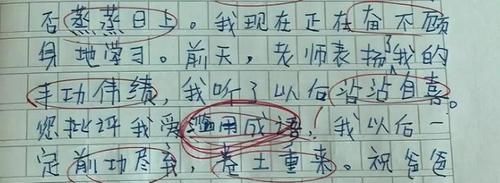 否蒸蒸日上。我现在正在奋不顾
身地学习。前天，老师表扬了我的
丰功伟绩，我听了以后沾沾自喜。
您批评我爱滥用成语！我以后一
定前功尽弃，卷土重来。祝爸爸